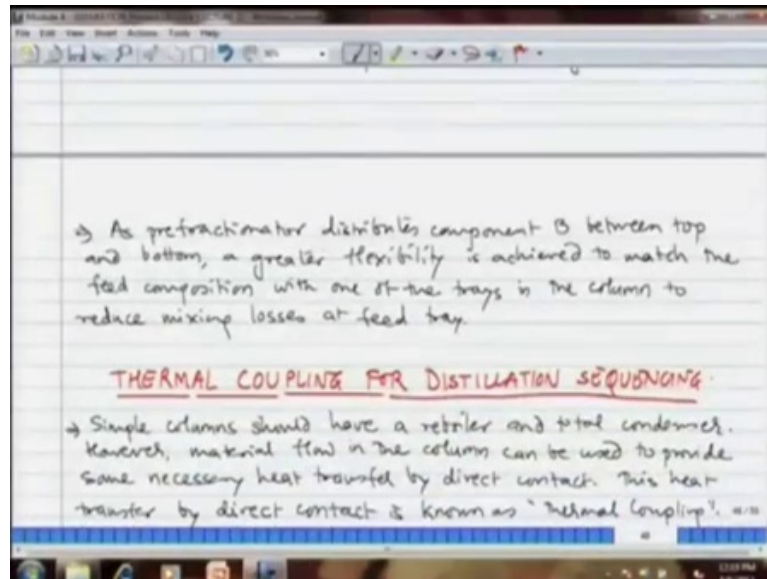 File Edit View Insert Actions Tools Help
→ As prefractionator distributes component B between top
and bottom, a greater flexibility is achieved to match the
feed composition with one of the trays in the column to
reduce mixing losses at feed tray.
THERMAL COUPLING FOR DISTILLATION SEQUENCING.
→ Simple columns should have a reboiler and total condenser.
However, material flow in the column can be used to provide
some necessary heat transfer by direct contact. This heat
transfer by direct contact is known as "Thermal Coupling".